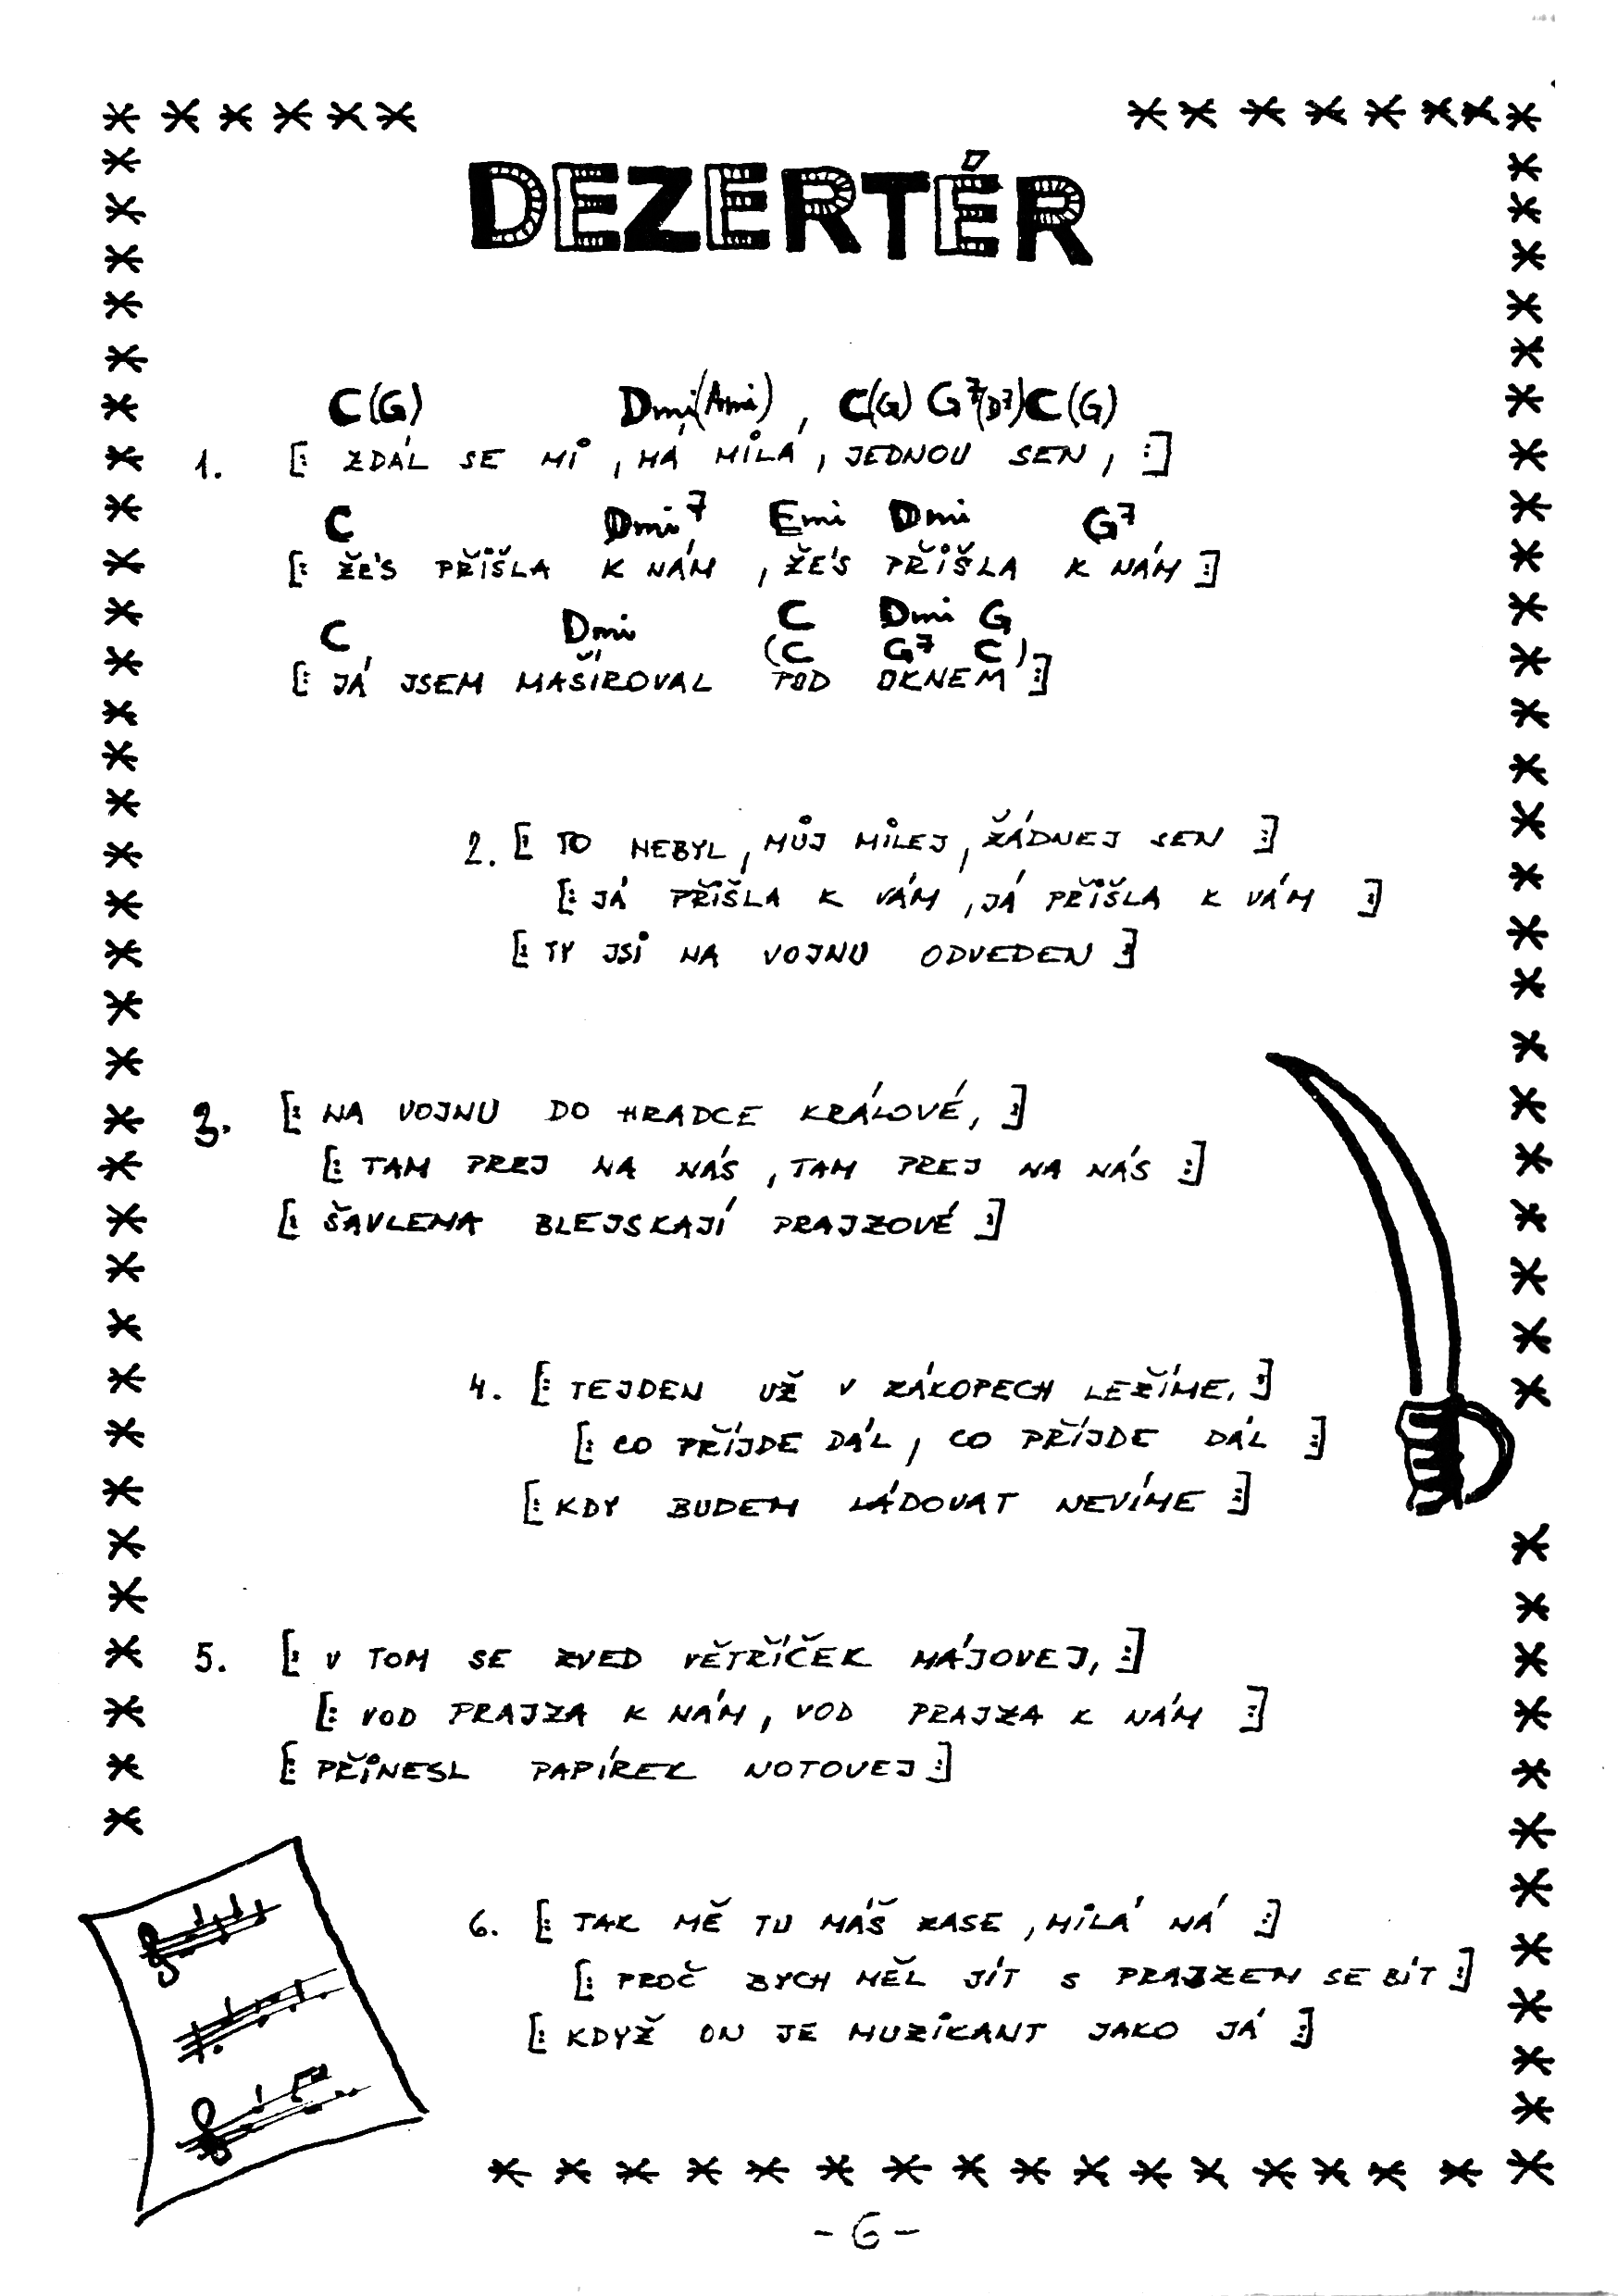 DEZERTÉR
C(G) Dmi(Ami), C(G) G7(D7) C(G)
1. [: ZDÁL SE MI, MÁ MILÁ, JEDNOU SEN, :]
C Dmi7 Emi Dmi G7
[: ŽE'S PŘIŠLA K NÁM, ŽE'S PŘIŠLA K NÁM :]
C Dmi C Dmi G
(C G7 C)
[: JÁ JSEM MAŠÍROVAL POD OKNEM :]
2. [: TO NEBYL, MŮJ MILEJ, ŽÁDNEJ SEN :]
[: JÁ PŘIŠLA K VÁM, JÁ PŘIŠLA K VÁM :]
[: TY JSI NA VOJNU ODVEDEN :]
3. [: NA VOJNU DO HRADCE KRÁLOVÉ, :]
[: TAM PREJ NA NÁS, TAM PREJ NA NÁS :]
[: ŠAVLEMA BLEJSKAJÍ PRAJZOVÉ :]
4. [: TEJDEN UŽ V ZÁKOPECH LEŽÍME, :]
[: CO PŘÍJDE DÁL, CO PŘÍJDE DÁL :]
[: KDY BUDEM LÁDOVAT NEVÍME :]
5. [: V TOM SE ZVED VĚTŘÍČEK MÁJOVEJ, :]
[: VOD PRAJZA K NÁM, VOD PRAJZA K NÁM :]
[: PŘINESL PAPÍREK NOTOVEJ :]
6. [: TAK MĚ TU MÁŠ ZASE, MILÁ MÁ :]
[: PROČ BYCH MĚL JÍT S PRAJZEM SE BÍT :]
[: KDYŽ ON JE MUZIKANT JAKO JÁ :]
- 6 -